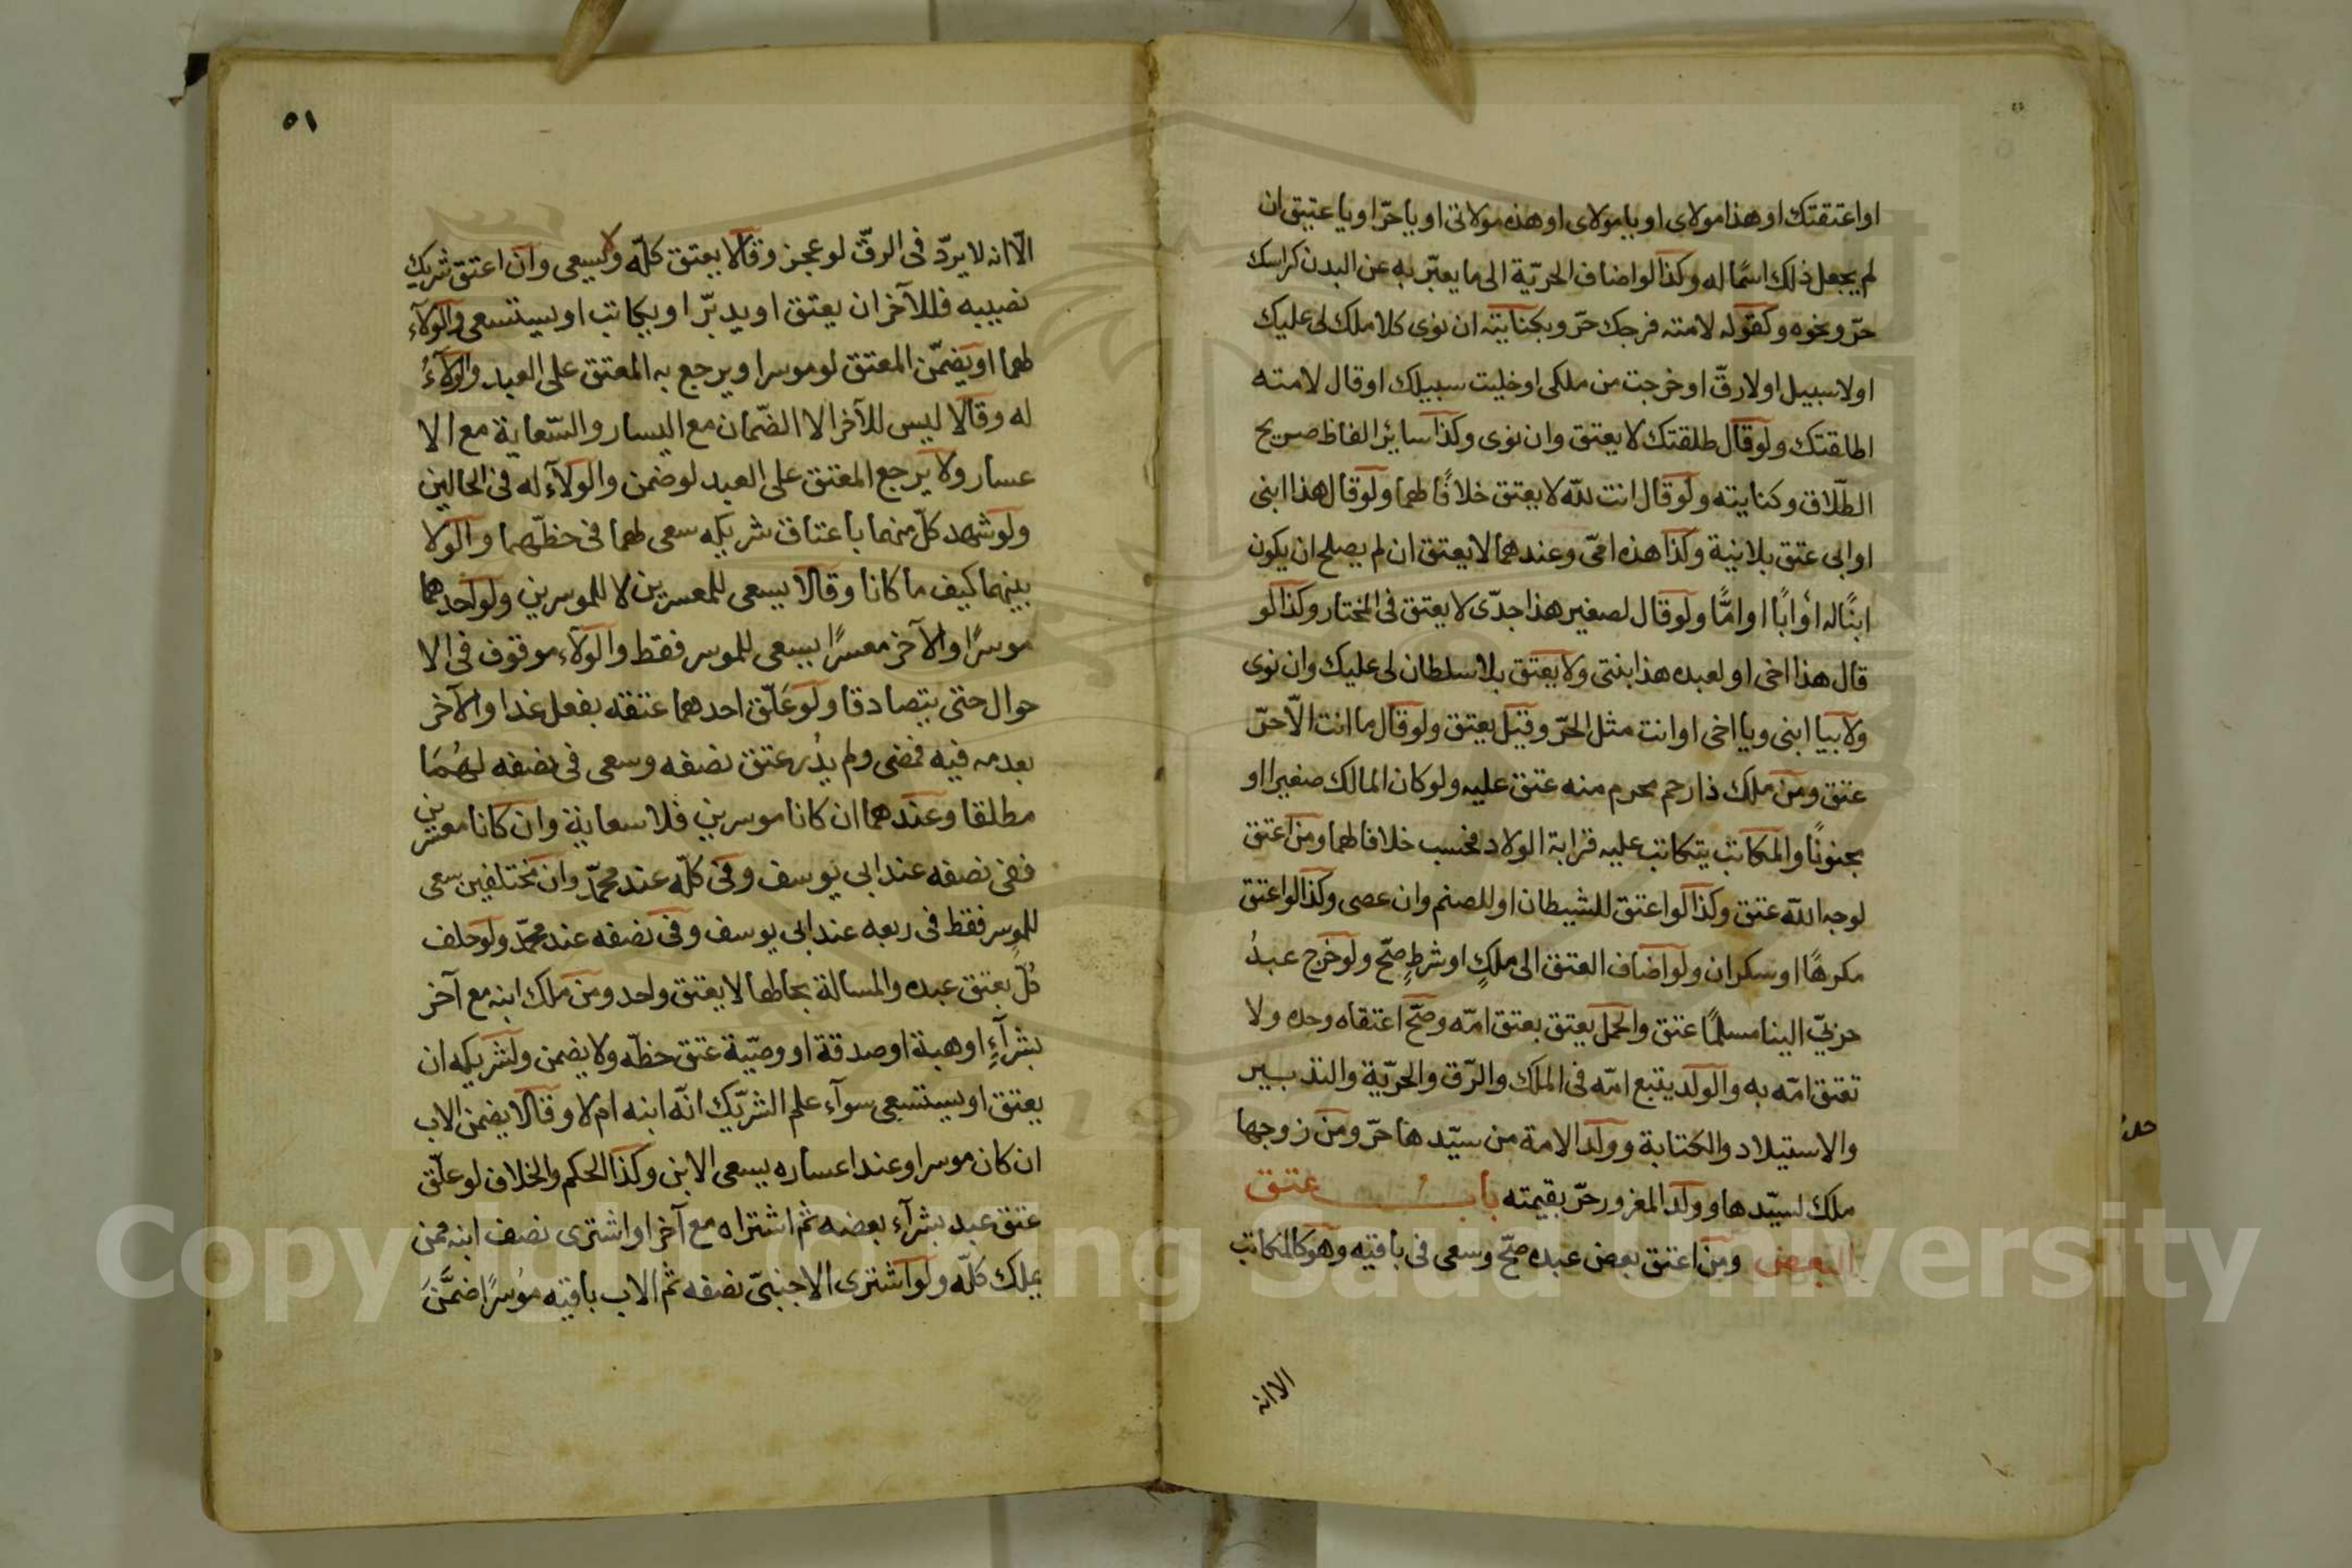 او اعتقتك او هذا مولاى او يا مولاى او هذه مولاتى او يا حرّ او يا عتيق ان
لم يجعل ذلك اسمًا له وكذا لو اضاف الحريّة الى ما يعبّر به عن البدن كراسك
حرّ ونحوه وكقوله لامته فرجك حرّ وبكنايته ان نوى كلا ملك لى عليك
اولا سبيل اولا رقّ او خرجت من ملكى او خليت سبيلك او قال لامته
اطلقتك ولو قال طلقتك لا يعتق وان نوى وكذا سائر الفاظ صريح
الطّلاق وكنايته ولو قال انت للّه لا يعتق خلافًا لهما ولو قال هذا ابنى
او ابى عتق بلا نية وكذا هذه امّى وعندهما لا يعتق ان لم يصلح ان يكون
ابنًا له او ابًا او امًّا ولو قال لصغير هذا جدّى لا يعتق فى المختار وكذا لو
قال هذا اخى او لعبده هذا بنتى ولا يعتق بلا سلطان لى عليك وان نوى
ولا بيا ابنى ويا اخى او انت مثل الحرّ وقيل يعتق ولو قال ما انت الّا حرّ
عتق ومن ملك ذا رحم محرم منه عتق عليه ولو كان المالك صغيرا او
مجنونًا والمكاتب يتكاتب عليه قرابة الولاد فحسب خلافا لهما ومن اعتق
لوجه اللّه عتق وكذا لو اعتق للشيطان او للصنم وان عصى وكذا لو اعتق
مكرهًا او سكران ولو اضاف العتق الى ملكٍ او شرطٍ صحّ ولو خرج عبدُ
حربىّ الينا مسلمًا عتق والحمل يعتق بعتق امّه وصحّ اعتقاه وحده ولا
تعتق امّه به والولد يتبع امّه فى الملك والرّق والحريّة والتدبير
والاستيلاد والكتابة وولد الامة من سيّدها حرّ ومن زوجها
ملك لسيّدها وولد المغرور حرّ بقيمته باب عتق
البعض ومن اعتق بعض عبده صحّ وسعى فى باقيه وهو كالمكاتب
الا انه
٥١
الّا انه لا يردّ فى الرقّ لو عجز وقالا يعتق كلّه ولا يسعى وان اعتق شريك
نصيبه فللآخر ان يعتق او يدبّر او يكاتب او يستسعى والولآء
لهما او يضمّن المعتق لو موسرا ويرجع به المعتق على العبد والولآءُ
له وقالا ليس للآخر الا الضّمان مع اليسار والسّعاية مع الا
عسار ولا يرجع المعتق على العبد لو ضمن والولآء له فى الحالين
ولو شهد كلّ منهما باعتاق شريكه سعى لهما فى حظّهما والولا
بينهما كيف ما كانا وقالا يسعى للمعسرين لا للموسرين ولو احدهما
موسرًا والآخر معسرًا يسعى للموسر فقط والولآء موقوف فى الا
حوال حتى يتصادقا ولو علّق احدهما عتقه بفعل غدا والآخر
بعدمه فيه فمضى ولم يدُر عتق نصفه وسعى فى نصفه لهُمَا
مطلقا وعندهما ان كانا موسرين فلا سعاية وان كانا معسرين
ففى نصفه عند ابى يوسف وفى كلّه عند محمّد وان مختلفين سعى
للموسر فقط فى ربعه عند ابى يوسف وفى نصفه عند محمّد ولو حلف
كلٌّ بعتق عبده والمسالة بحالها لا يعتق واحد ومن ملك ابنه مع آخر
بشرآءٍ او هبة او صدقة او وصيّة عتق حظّه ولا يضمن ولشريكه ان
يعتق او يستسعى سوآء علم الشريك انّه ابنه ام لا وقالا يضمن الاب
ان كان موسرا وعند اعساره يسعى الابن وكذا الحكم والخلاف لو علّق
عتق عبد بشرآء بعضه ثم اشتراه مع آخر او اشترى نصف ابنه ممن
يملك كلّه ولو اشترى الاجنبىّ نصفه ثم الاب باقيه موسرًا ضمَّنَ
Copyright © King Saud University